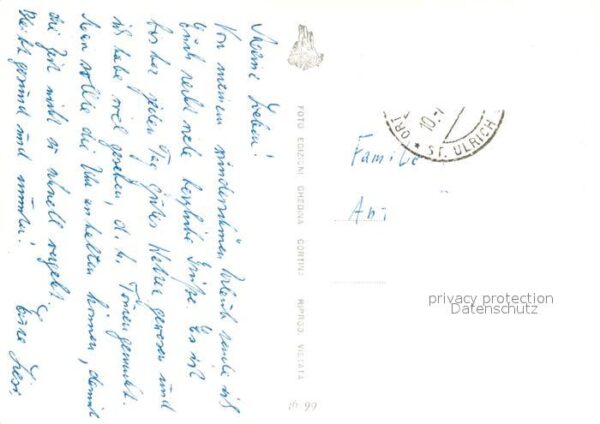 Meine Lieben!
Von meinem wunderschönen Urlaub sende ich
Euch recht viele herzliche Grüße. Es ist
bisher jeden Tag gutes Wetter gewesen und
ich habe viel gesehen, d. h. Touren gemacht.
Man sollte die Uhr anhalten können, damit
die Zeit nicht so schnell vergeht.
Bleibt gesund und munter!
Eure
FOTO EDIZIONI GHEDINA CORTINA RIPROD. VIETATA
ORT * ST. ULRICH
10.
Familie
An
privacy protection
Datenschutz